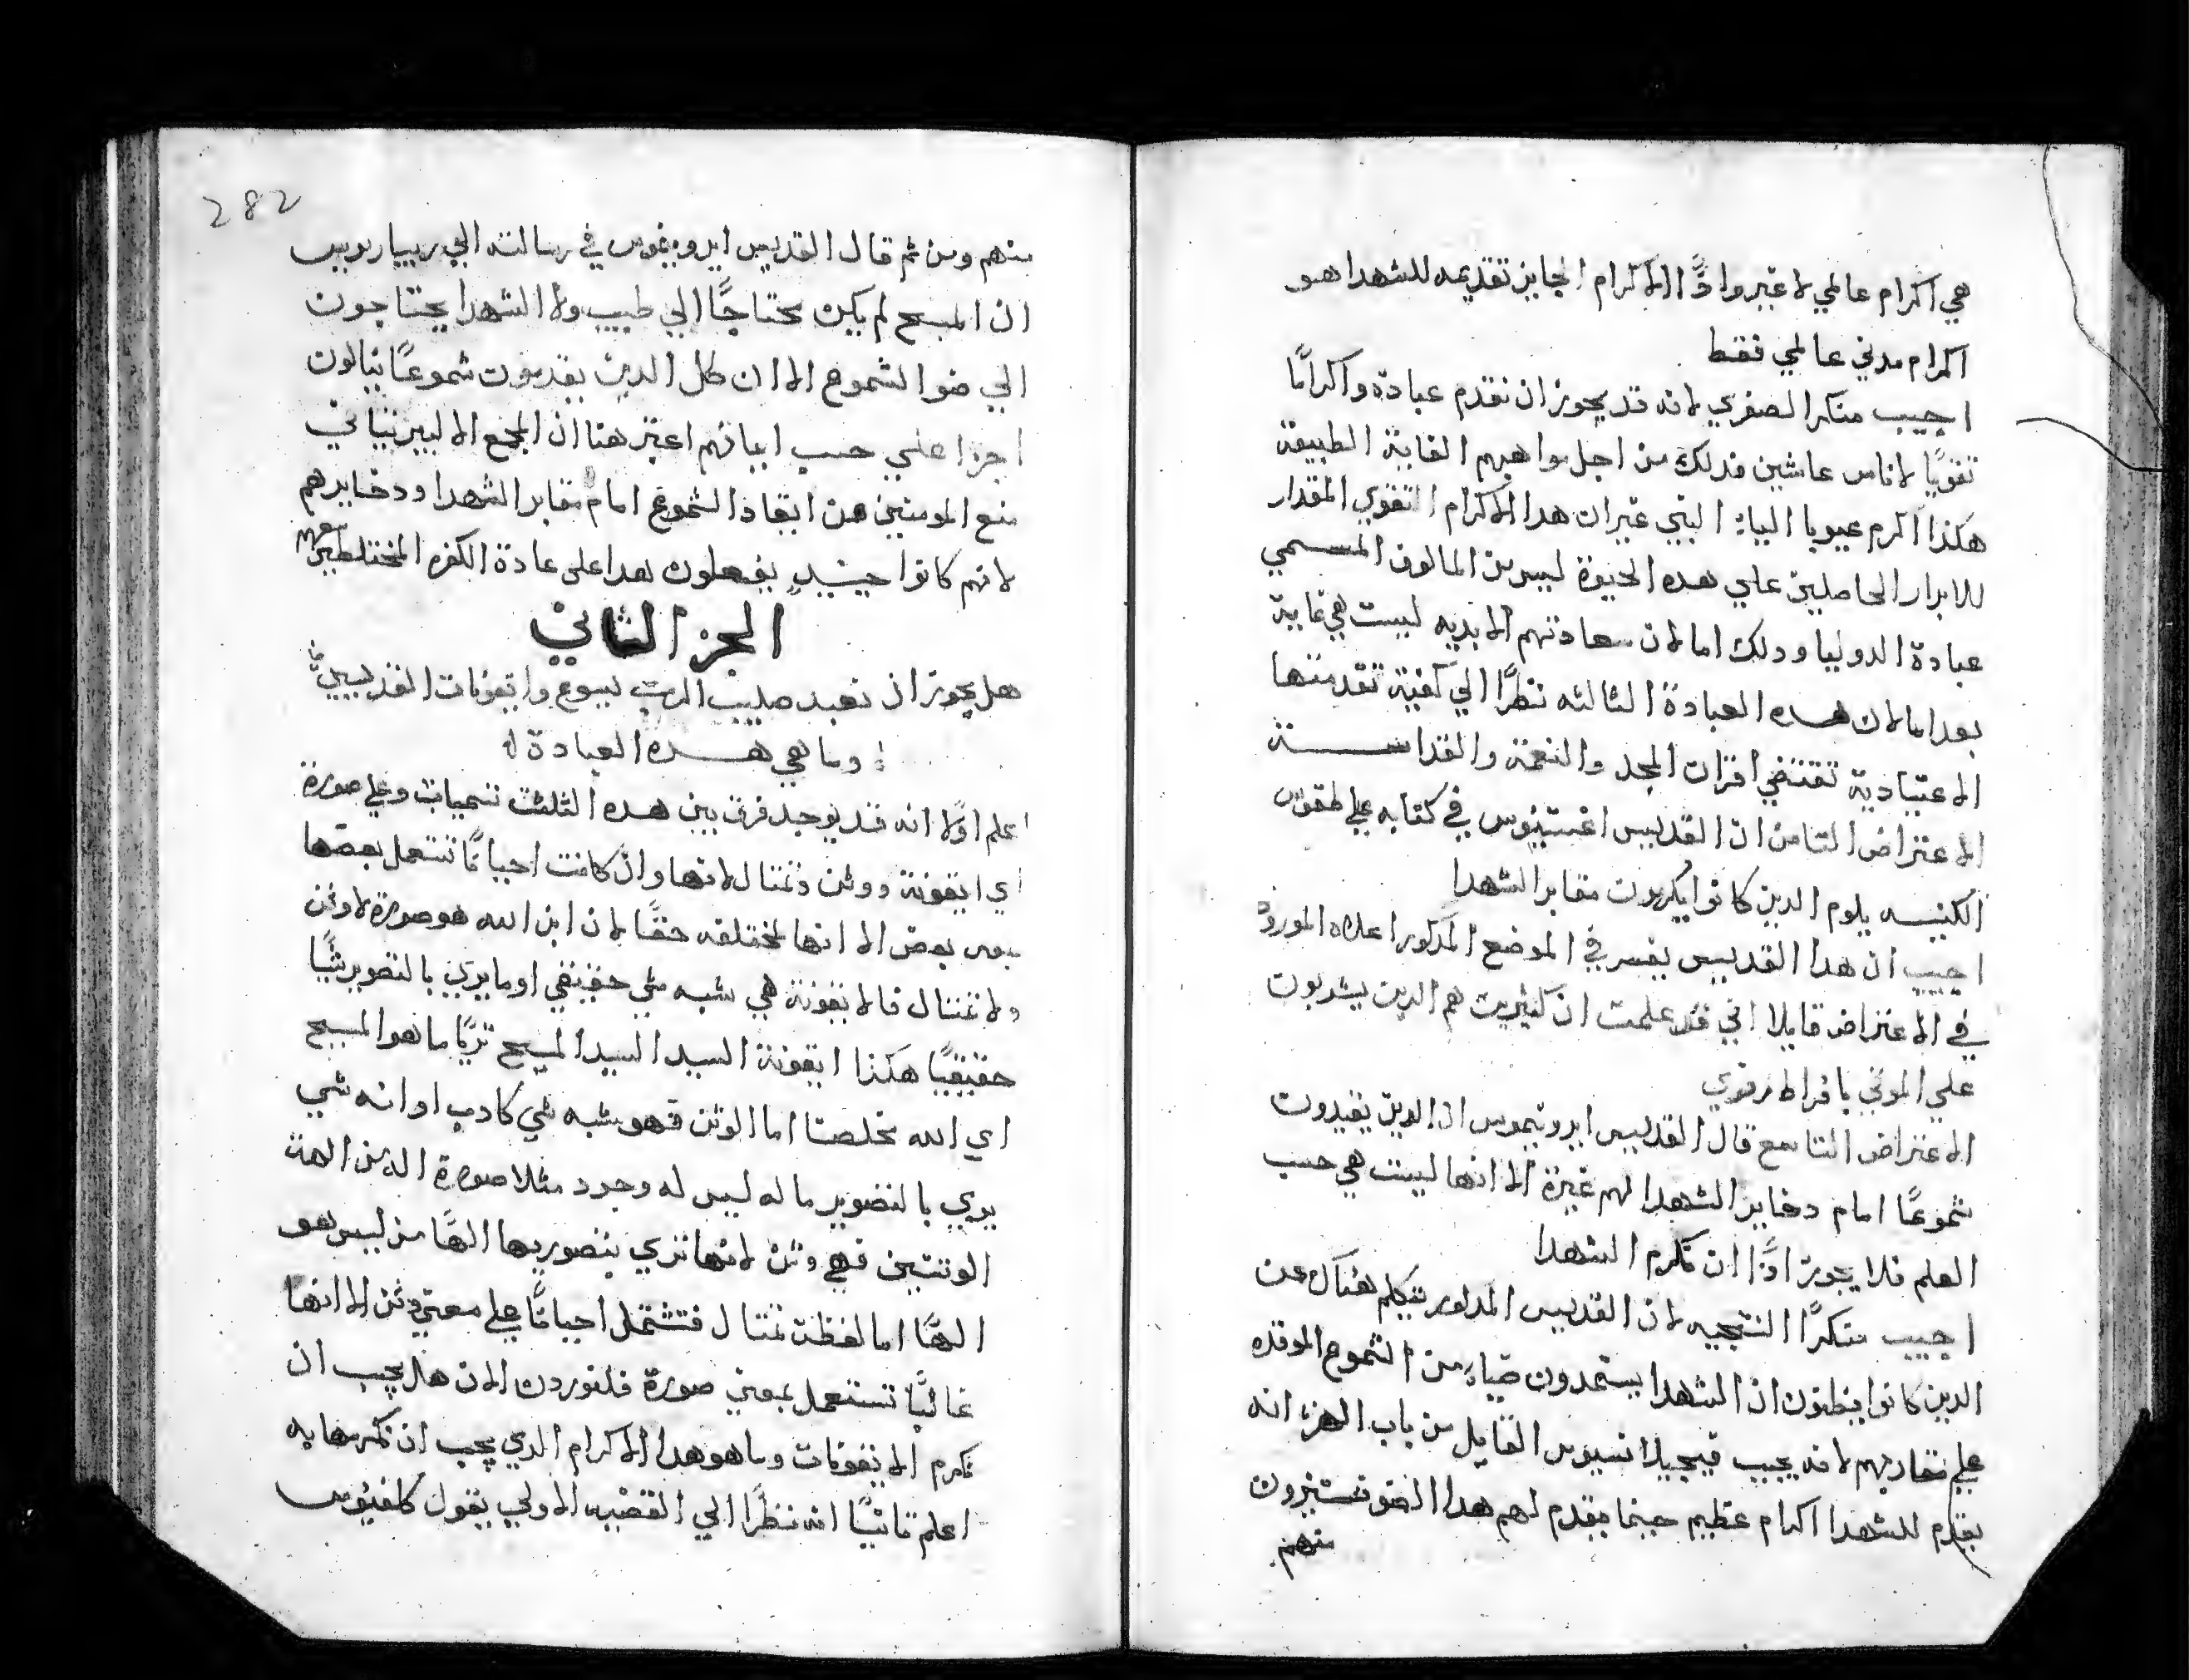 هي اكرام عالمي لا غير واذًا الاكرام الجايز تقديمه للشهدا هو
اكرام مدني عالمي فقط
اجيب منكرا الصغري لانه قد يجوز ان نقدم عبادة واكرامًا
تقويًا لاناس عاشين فذلك من اجل مواهبهم الفايقة الطبيعة
هكذا اكرم عبوديا اليا النبي غير ان هدا الاكرام التقوي المقدار
للابرار الحاصلين علي هده الحيوة ليس من المالوف المسمي
عبادة الدوليا ودلك اما لان سعادتهم الابديه ليست هي ثابتة
بعد اما لان هده العبادة الثالثه نظرًا الي كيفية تقدمتها
الاعتيادية تقتضي اقران المجد والنعمة والقداسة
الاعتراض الثامن ان القديس اغستينوس في كتابه علي طقوس
الكنيسه يلوم الدين كانوا يكرمون مقابر الشهدا
اجيب ان هدا القديس يفسر في الموضع المدكور اعلاه المورود
في الاعتراض قايلا اني قد علمت ان كثيرين هم الدين يشربون
علي الموتي بافراط
الاعتراض التاسع قال القديس ايرونيموس ان الدين يقيدون
شموعًا امام دخاير الشهدا لهم غيرة الا انها ليست هي حسب
العلم فلا يجوز اذًا ان نكرم الشهدا
اجيب منكرًا النتيجه لان القديس المدكور يتكلم هناك عن
الدين كانوا يظنون ان الشهدا يستمدون ضياء من الشموع الموقده
علي مقابرهم لانه يجيب فيجيلانسيوس القايل من باب الهزء انه
يقدم للشهدا اكرام عظيم حينما يقدم لهم هدا الضو
منهم
282
منهم ومن ثم قال القديس ايرونيموس في رسالته الي ريباريوس
ان المسيح لم يكن محتاجًا الي طيب ولا الشهدا يحتاجون
الي ضوا الشموع الا ان كل الدين يقدمون شموعًا ينالون
اجرا علي حسب ايمانهم اعتبر هنا ان المجمع الاليبيرنياني
منع المومنين عن ايقاد الشموع امام مقابر الشهدا ودخايرهم
لانهم كانوا حينيدٍ يفعلون هدا علي عادة الكفره المختلطين معهم
الجز الثاني
هل يجوز ان نعبد صليب الرب يسوع وايقونات القديسين
وما هي هده العبادة
اعلم اولا انه قد يوجد فرق بين هده الثلث تسميات وهي صورة
اي ايقونة ووثن وتمثال لانها وان كانت احيانًا تستعمل بعضها
بمعني بعض الا انها مختلفه حقًا لان ابن الله هو صورة لا وثن
ولا تمثال فالايقونة هي شبه شي حقيقي او ما يري بالتصوير شيًا
حقيقيًا هكذا ايقونة السيد السيد المسيح تريًا ما هو المسيح
اي الله مخلصنا اما الوثن فهو شبه شي كادب او انه شي
يري بالتصوير ما له ليس له وجود مثلا صورة اله من الهة
الوثنيين فهي وثن لانها تري بتصويرها الهًا من ليس هو
الهًا اما لفظة تمثال فتشتمل احيانًا علي معني وثن الا انها
غالبًا تستعمل بمعني صورة فلنوردن الان هل يجب ان
نكرم الايقونات وما هو هدا الاكرام الدي يجب ان نكرمها به
اعلم ثانيًا انه نظرًا الي القضيه الاولي يقول كلفينوس